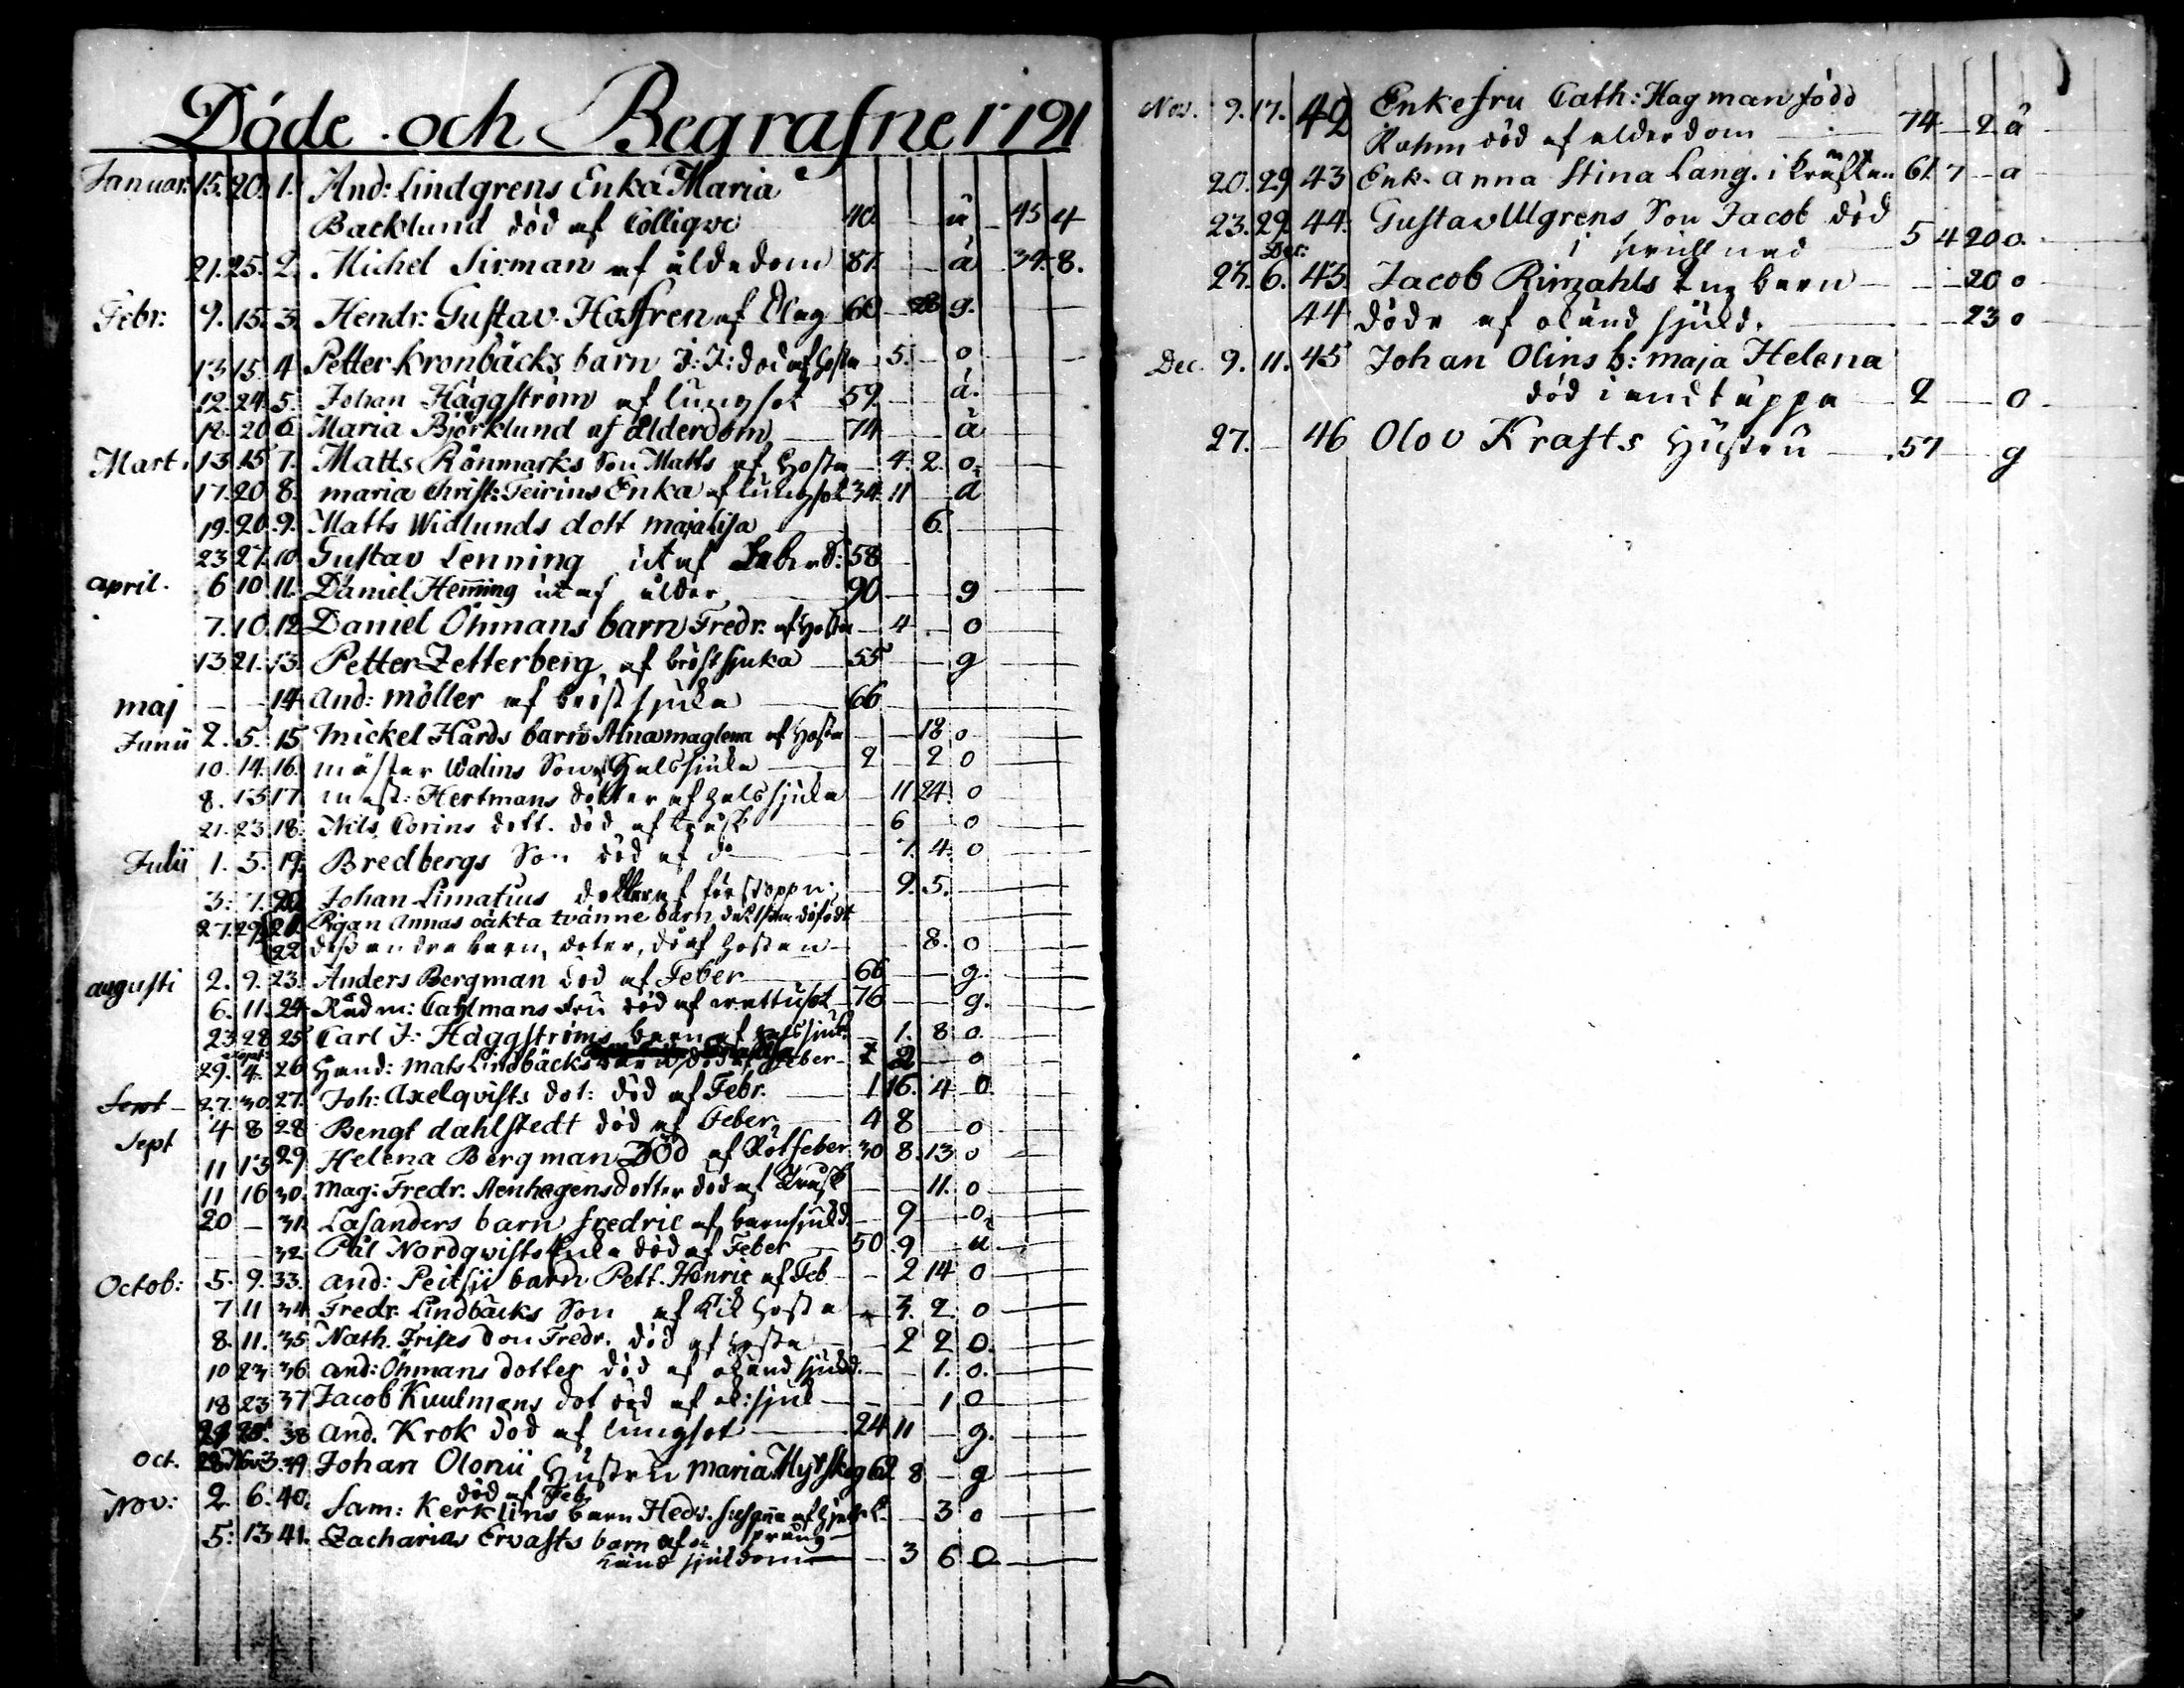 Döde och Begrafne 1791
Januar. 15. 20. 1. And: Lindgrens Enka Maria
Backlund död af Colligve 40. ä 45 4
21. 25. 2. Michel Sirman af ålderdom 81. ä 34. 8.
Febr: 9. 15. 3. Hendr: Gustav Hoffren af Slag 60 28 g.
13 15. 4 Petter Kronbäcks barn J: J: död af hosta 5. o
12. 24. 5. Johan Häggström af lungsot 59. ä.
18. 20 6 Maria Björklund af ålderdom 74 ä
Mart. 13 15 7. Matts Rönmarks Son Matts af Hosta 4. 2. o
17. 20 8. maria Christ: Feirins Enka af lungsot 34. 11 ä
19. 20. 9. Matts Widlunds dott maja Lisa 6.
23 27. 10 Gustav Lenning ut af 58
april. 6 10 11. Daniel Henning ut af ålder 90 g
7. 10. 12 Daniel Öhmans barn Fredr. af Hosta 4 o
13 21. 13. Petter Zetterberg af bröstsjuka 55 g
maj 14 And: möller af bröstsjuka 66
Junii 2. 5. 15 Mickel Hårds barn Stina maglena af Hosta 18 o
10. 14. 16. mäster Walins Son af Halssjuka 2 2 o
8. 13 17. mäst: Hertmans dotter af halssjuka 11 24. o
21. 23. 18. Nils Corins dott. död af Trusk 6 o
Julii 1. 5. 19. Bredbergs Son död af do 7. 4. o
3: 7. 20 Johan Limatius dotter af förstoppn: 9. 5.
27. 29. 21. Pigan Annas oäkta tvänne barn det 1sta dödfödt
22 dess andra barn, doter, dö af Hostan 8. o
augusti 2. 9. 23. Anders Bergman död af Feber 66 g.
6. 11. 24 Rådm: Cahlmans Fru död af wattusot 76 g.
23 28 25 Carl J: Häggströms barn af halssjuk. 1. 8 o.
29. 4. 26 Hand: Mats Lindbäcks Feber 2 o
27. 30. 27. Joh: Axelqvists dot: död af Febr. 1 16. 4 o
Sept 4 8 28 Bengt dahlstedt död af Feber 4 8 o
11 13 29 Helena Bergman Död af Rötfeber 30 8. 13 o
11 16 30. Mag: Fredr. Stenhagens dotter död af Trusk 11. o
20 31. Lasanders barn fredric af barnsjukd. 9 o
32. Pål Nordqvists Enka död af Feber 50. 9 ä
Octob: 5. 9. 33. And: Peitsii barn Pett. Henric af Feb 2 14 o
7 11 34 Fredr. Lindbäcks Son af Kikhosta 3. 2. o
8. 11. 35 Nath. Frises Son Fredr. död af hosta 2 2 o.
10 23 36 And: Öhmans dotter död af okänd sjukd. 1. o.
18 23 37 Jacob Kuulmans dot död af ok: sjuk 1 o
38 And. Krok död af lungsot 24 11 g.
Oct. 28 Nov 3. 39 Johan Olonii Hustru Maria Myrskog 62 8 g
död af Feb.
Nov: 2. 6. 40. Sam: Kerklins barn Hedv. Susanna af 3 o
5. 13 41. Zacharias Ervasts barn af
känd sjukdom 3 6 o
Nov. 9. 17. 42 Enkefru Cath: Hagman född
Rahm död af ålderdom 74 2 ä
20. 29 43 Enk. Anna Stina Lang. i kräftan 61. 7 ä
23. 29. 44. Gustav Ulgrens Son Jacob död
i 5 4 20 o.
25. Dec: 6. 43. Jacob Rimahls barn 20 o
44 döde af okänd sjukd. 23 o
Dec. 9. 11. 45 Johan Olins b: maja Helena
död i andtäppa 2 o
27. 46 Olov Krafts Hustru 57 g